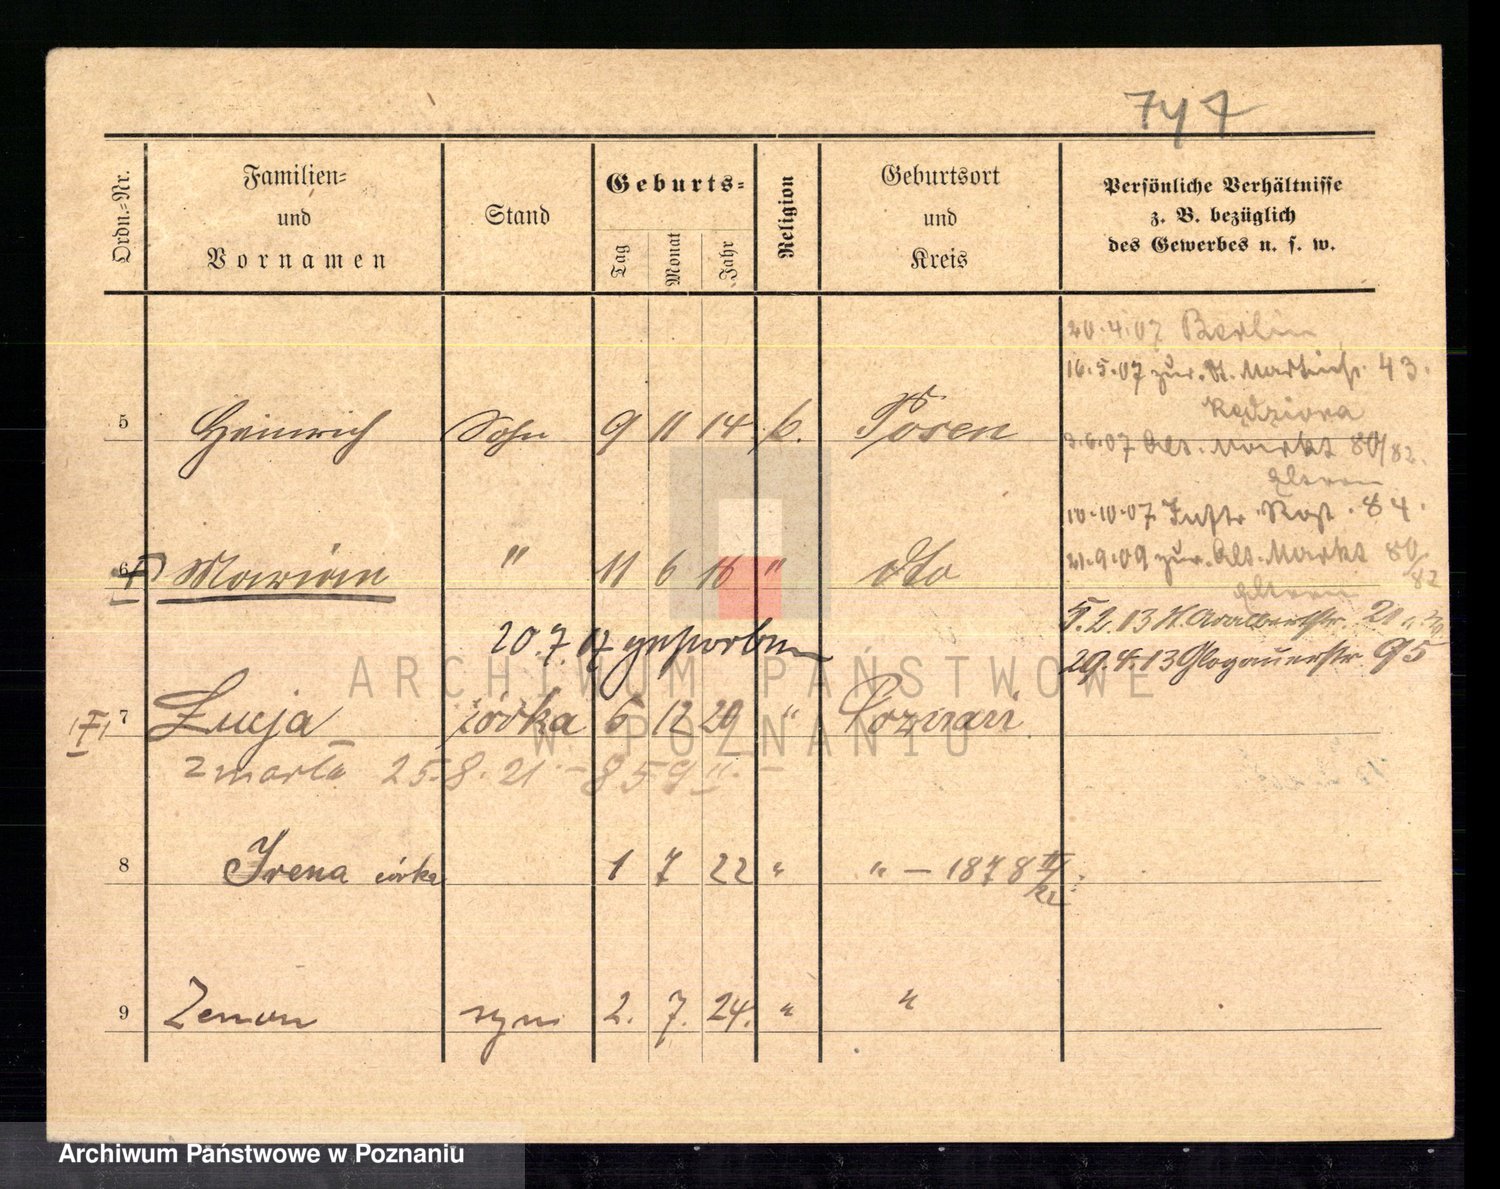 Ordn.-Nr.
Familien-
und
Vornamen
Stand
Geburts-
Tag
Monat
Jahr
Religion
Geburtsort
und
Kreis
Persönliche Verhältnisse
z. B. bezüglich
des Gewerbes u. s. w.
20.4.07 Berlin
16.5.07 zur. St. Martinstr. 43.
Kędziora
5 Heinrich Sohn 9 11 14 k. Posen
3.6.07 Alt. Markt 80/82.
Eltern
10.10.07 84.
6 Marian " 11 6 16 " dto
21.9.09 zur. Alt. Markt 80/82
Eltern
20.7.17 gestorben
5.2.13 21
29.4.13 Glogauerstr. 95
7 Łucja córka 6 12 20 " Poznań
zmarła 25.8.21 - 859 II. -
8 Irena córka 1 7 22 " " - 1878 II/22.
9 Zenon syn 2. 7. 24. " "
ARCHIWUM PAŃSTWOWE
W POZNANIU
Archiwum Państwowe w Poznaniu